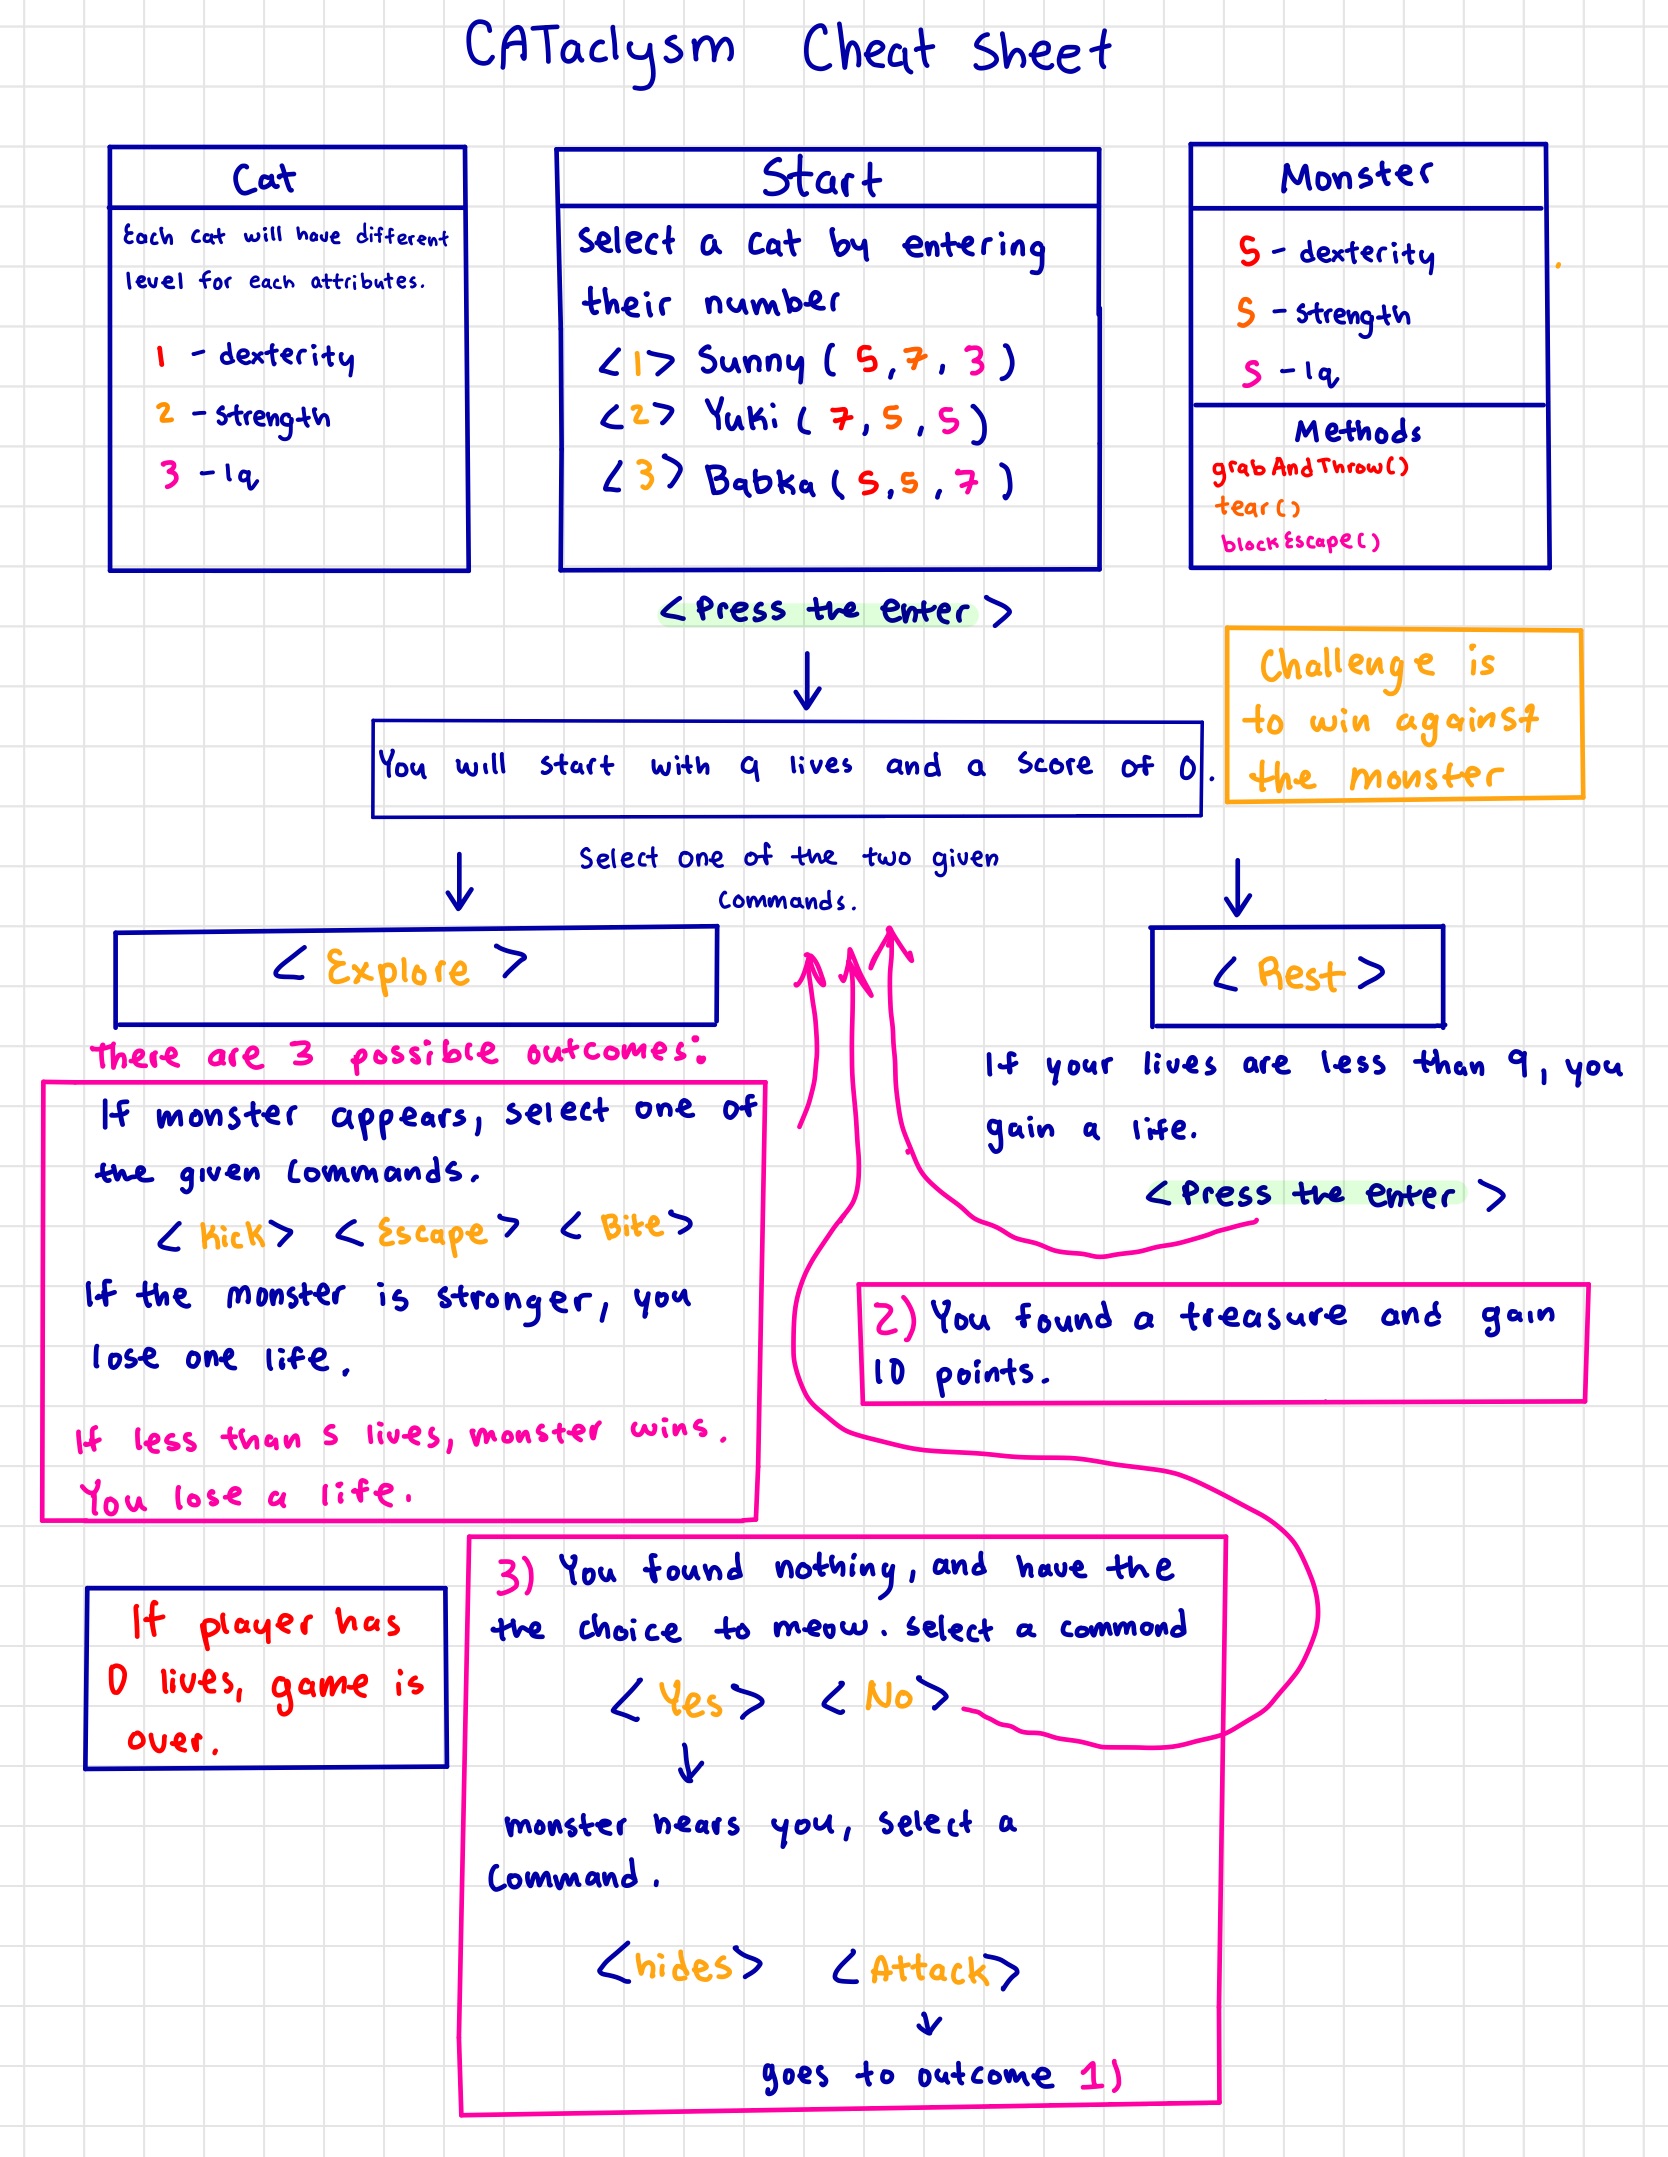 CATaclysm Cheat Sheet
Cat
Each cat will have different
level for each attributes.
1 - dexterity
2 - strength
3 - Iq
Start
select a cat by entering
their number
<1> Sunny ( 5, 7, 3 )
<2> Yuki ( 7, 5, 5 )
<3> Babka ( 5, 5, 7 )
Monster
5 - dexterity
5 - strength
5 - Iq
Methods
grabAndThrow()
tear()
blockEscape()
<Press the enter>
Challenge is
to win against
the monster
You will start with 9 lives and a score of 0.
Select one of the two given
commands.
<Explore>
<Rest>
There are 3 possible outcomes:
If monster appears, select one of
the given commands.
<Kick> <Escape> <Bite>
If the monster is stronger, you
lose one life.
If less than 5 lives, monster wins.
You lose a life.
If your lives are less than 9, you
gain a life.
<Press the enter>
2) You found a treasure and gain
10 points.
3) You found nothing, and have the
the choice to meow. select a command
<Yes> <No>
monster hears you, select a
command.
<hides> <Attack>
goes to outcome 1)
If player has
0 lives, game is
over.